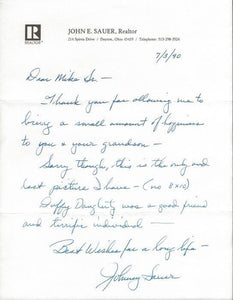 R
REALTOR®
JOHN E. SAUER, Realtor
Dayton, Ohio 45459 / Telephone:
7/3/90
Dear Mike Sr. —
Thank you for allowing me to
bring a small amount of happiness
to you & your grandson —
Sorry though, this is the only and
last picture I have — (no 8x10)
Duffy Daugherty was a good friend
and terrific individual —
Best Wishes for a long life —
Johnny Sauer